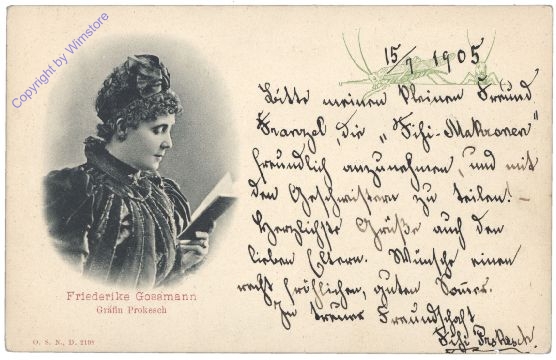 Copyright by Wimstore
15/7 1905
Bitte meinen kleinen Freund
Franzel, die „Fifi-Makronen"
freundlich anzunehmen, und mit
den Geschwistern zu teilen! –
Herzlichste Grüße auch den
lieben Eltern. Wünsche einen
recht fröhlichen, guten Sommer.
In treuer Freundschaft
Fifi Prokesch.
Friederike Gossmann
Gräfin Prokesch
O. S. N., D. 2198